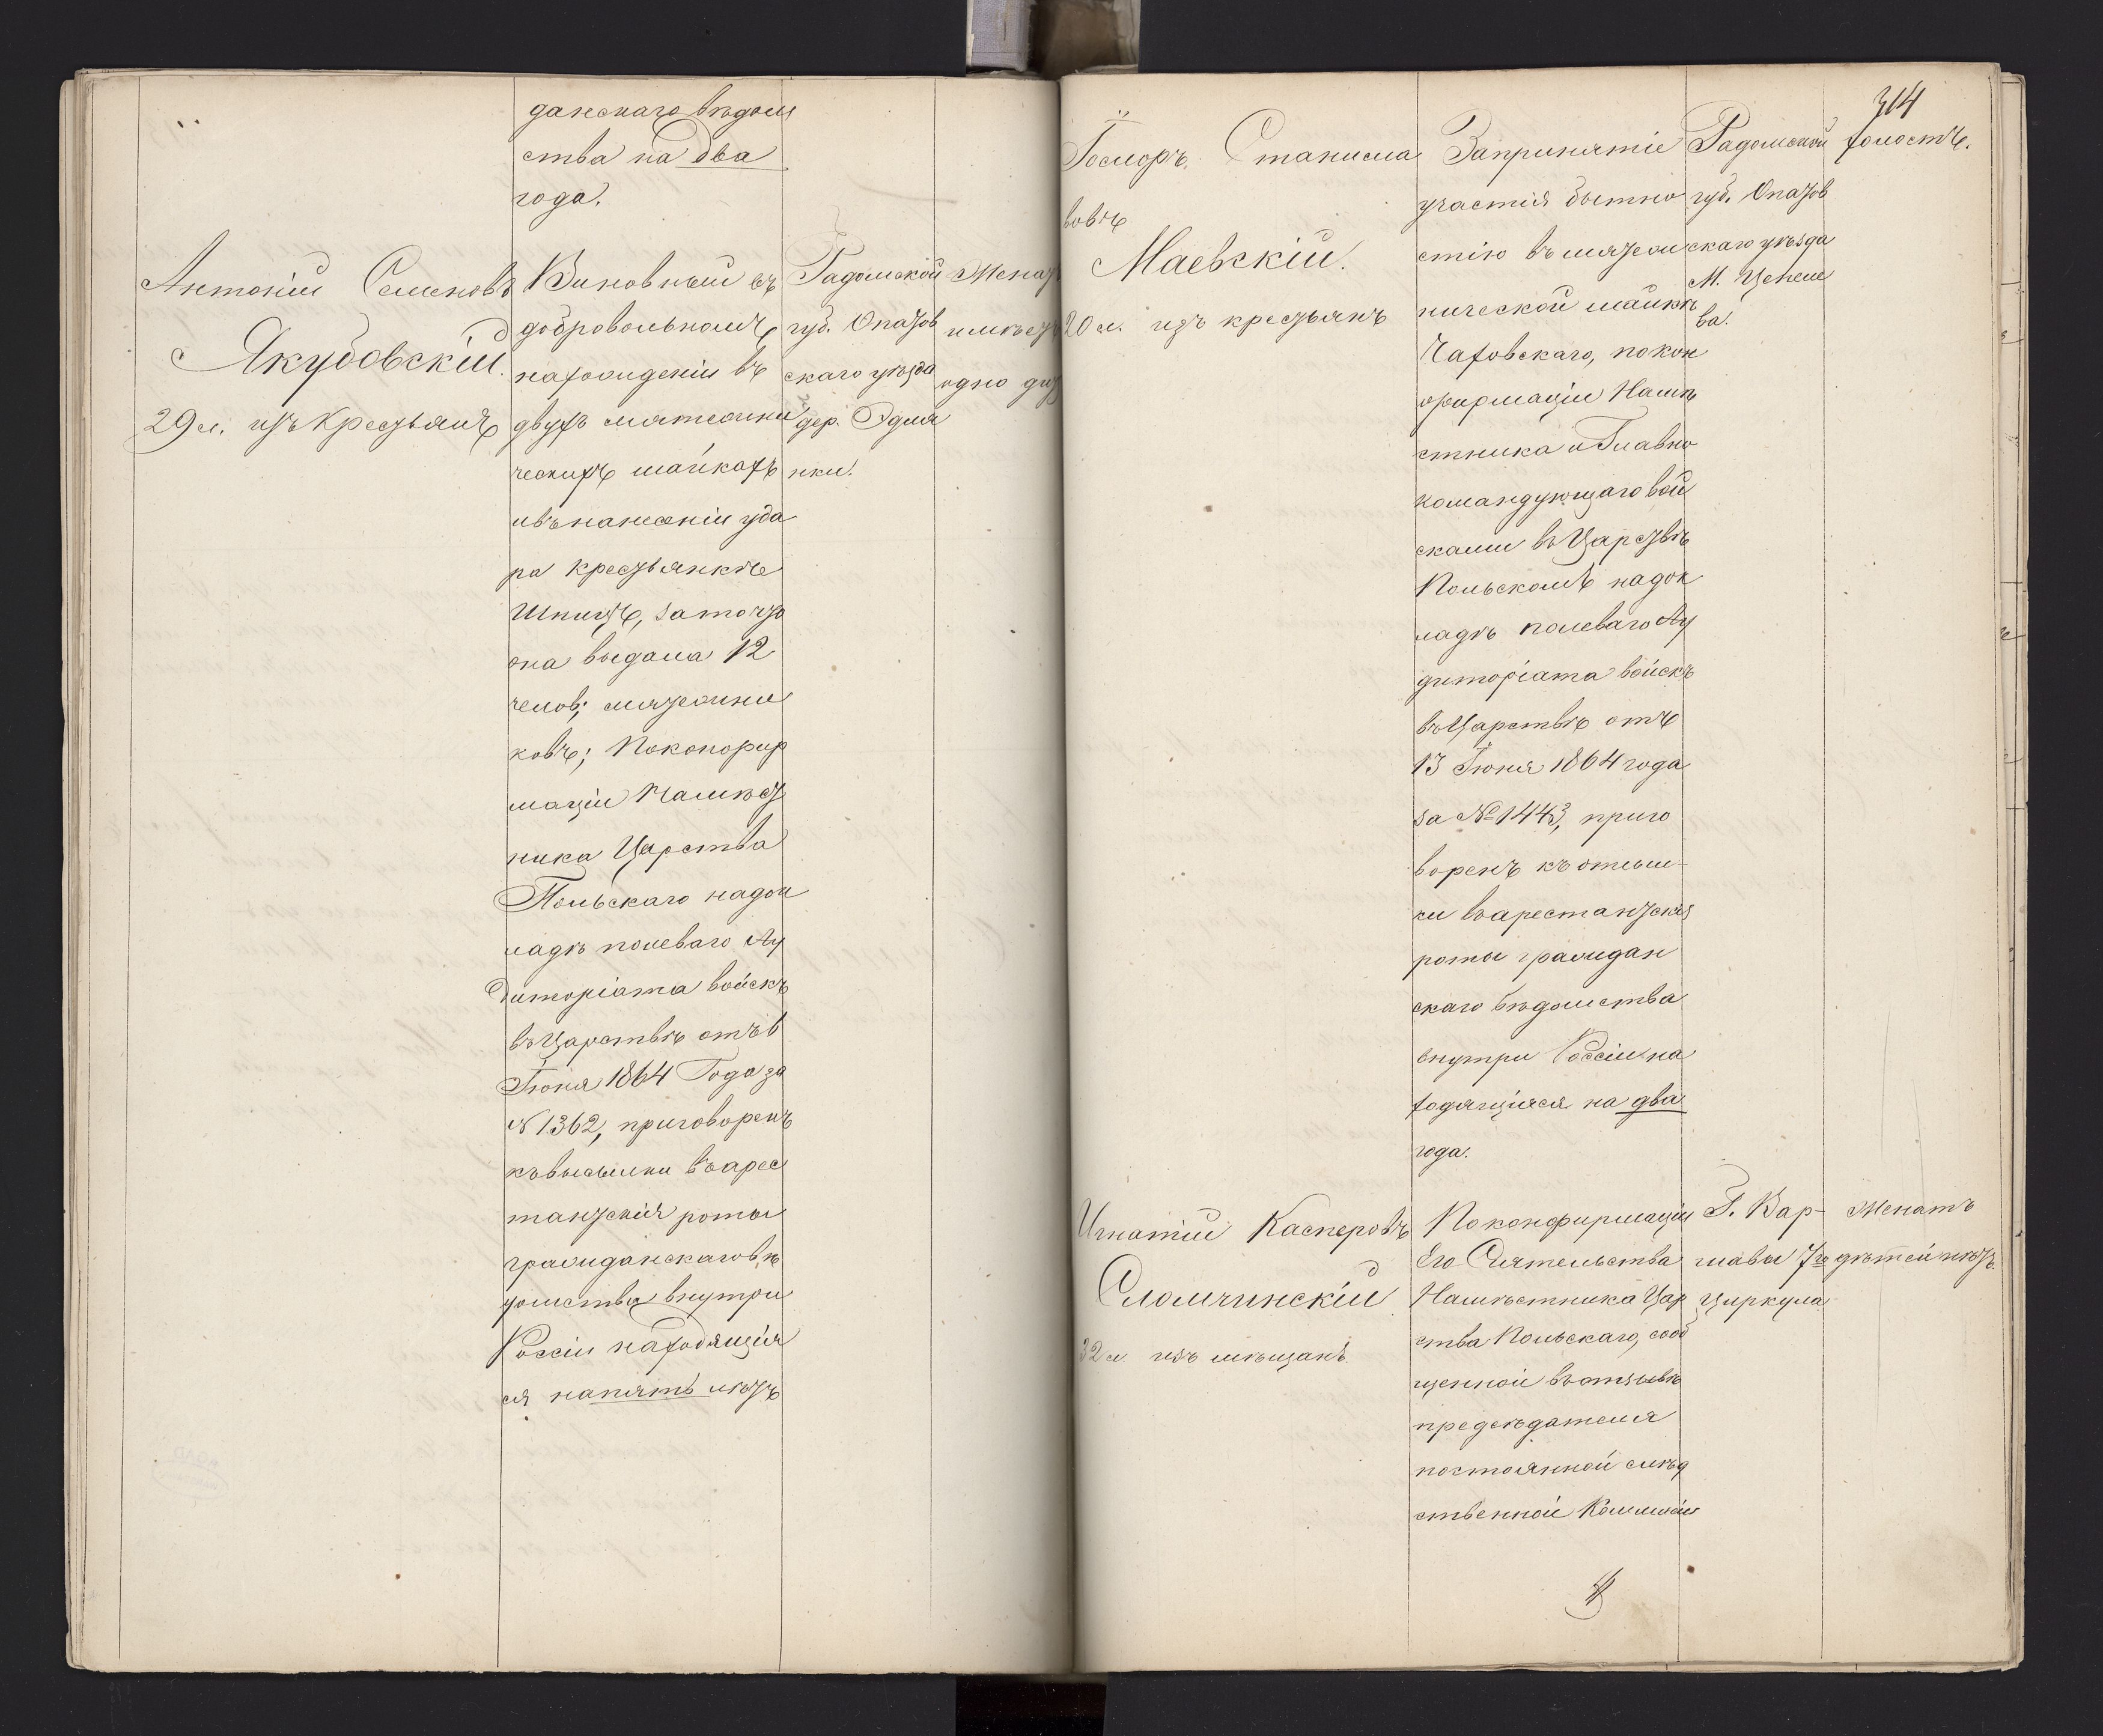 данскаго вѣдом
ства на два
года.
Антоній Семеновъ
Якубовскій.
29 л. изъ крестьянъ
Виновный въ
добровольномъ
нахожденіи въ
двухъ мятежни
ческихъ шайкахъ
и въ нанесеніи уда
ра крестьянкѣ
Шпицъ, за то что
она выдала 12
челов; мятежни
ковъ; По конфир
маціи Намѣст
ника Царства
Польскаго на док
ладѣ полеваго Ау
диторіата войскъ
въ Царствѣ отъ 6
Іюня 1864 Года за
№ 1362, приговоренъ
къ высылки въ арес
тантскія роты
гражданскаго вѣ
домства внутри
Россіи находящія
ся на пять лѣтъ
Радомской
губ. Опатов
скаго уѣзда
дер.
нки.
Женат
имѣетъ
одно дит
314
Станисла
вовъ
Маевскій.
20 л. изъ крестьянъ
За принятіе
участія бытно
стію въ мятеж
нической шайкѣ
Чаховскаго, по кон
фирмаціи Намѣ
стника и Главно
командующаго вой
сками въ Царствѣ
Польскомъ на док
ладѣ полеваго Ау
диторіата войскъ
въ Царствѣ отъ
13 Іюня 1864 года
за № 1443, приго
воренъ къ отсыл-
ки въ арестантскія
роты граждан
скаго вѣдомства
внутри Россіи на
ходящіяся на два
года.
Радомской
губ. Опатов
скаго уѣзда
М. Цепеле
ва.
холостъ.
Игнатій Касперовъ
Сломчинскій
32 л изъ мѣщанъ.
По конфирмаціи
Его Сіятельства
Намѣстника Цар
ства Польскаго, сооб
щенной въ отзывѣ
предсѣдателя
постоянной слѣд
ственной Коммисіи
Г. Вар-
шавы 7го
Циркула
Женатъ
дѣтей нѣтъ.